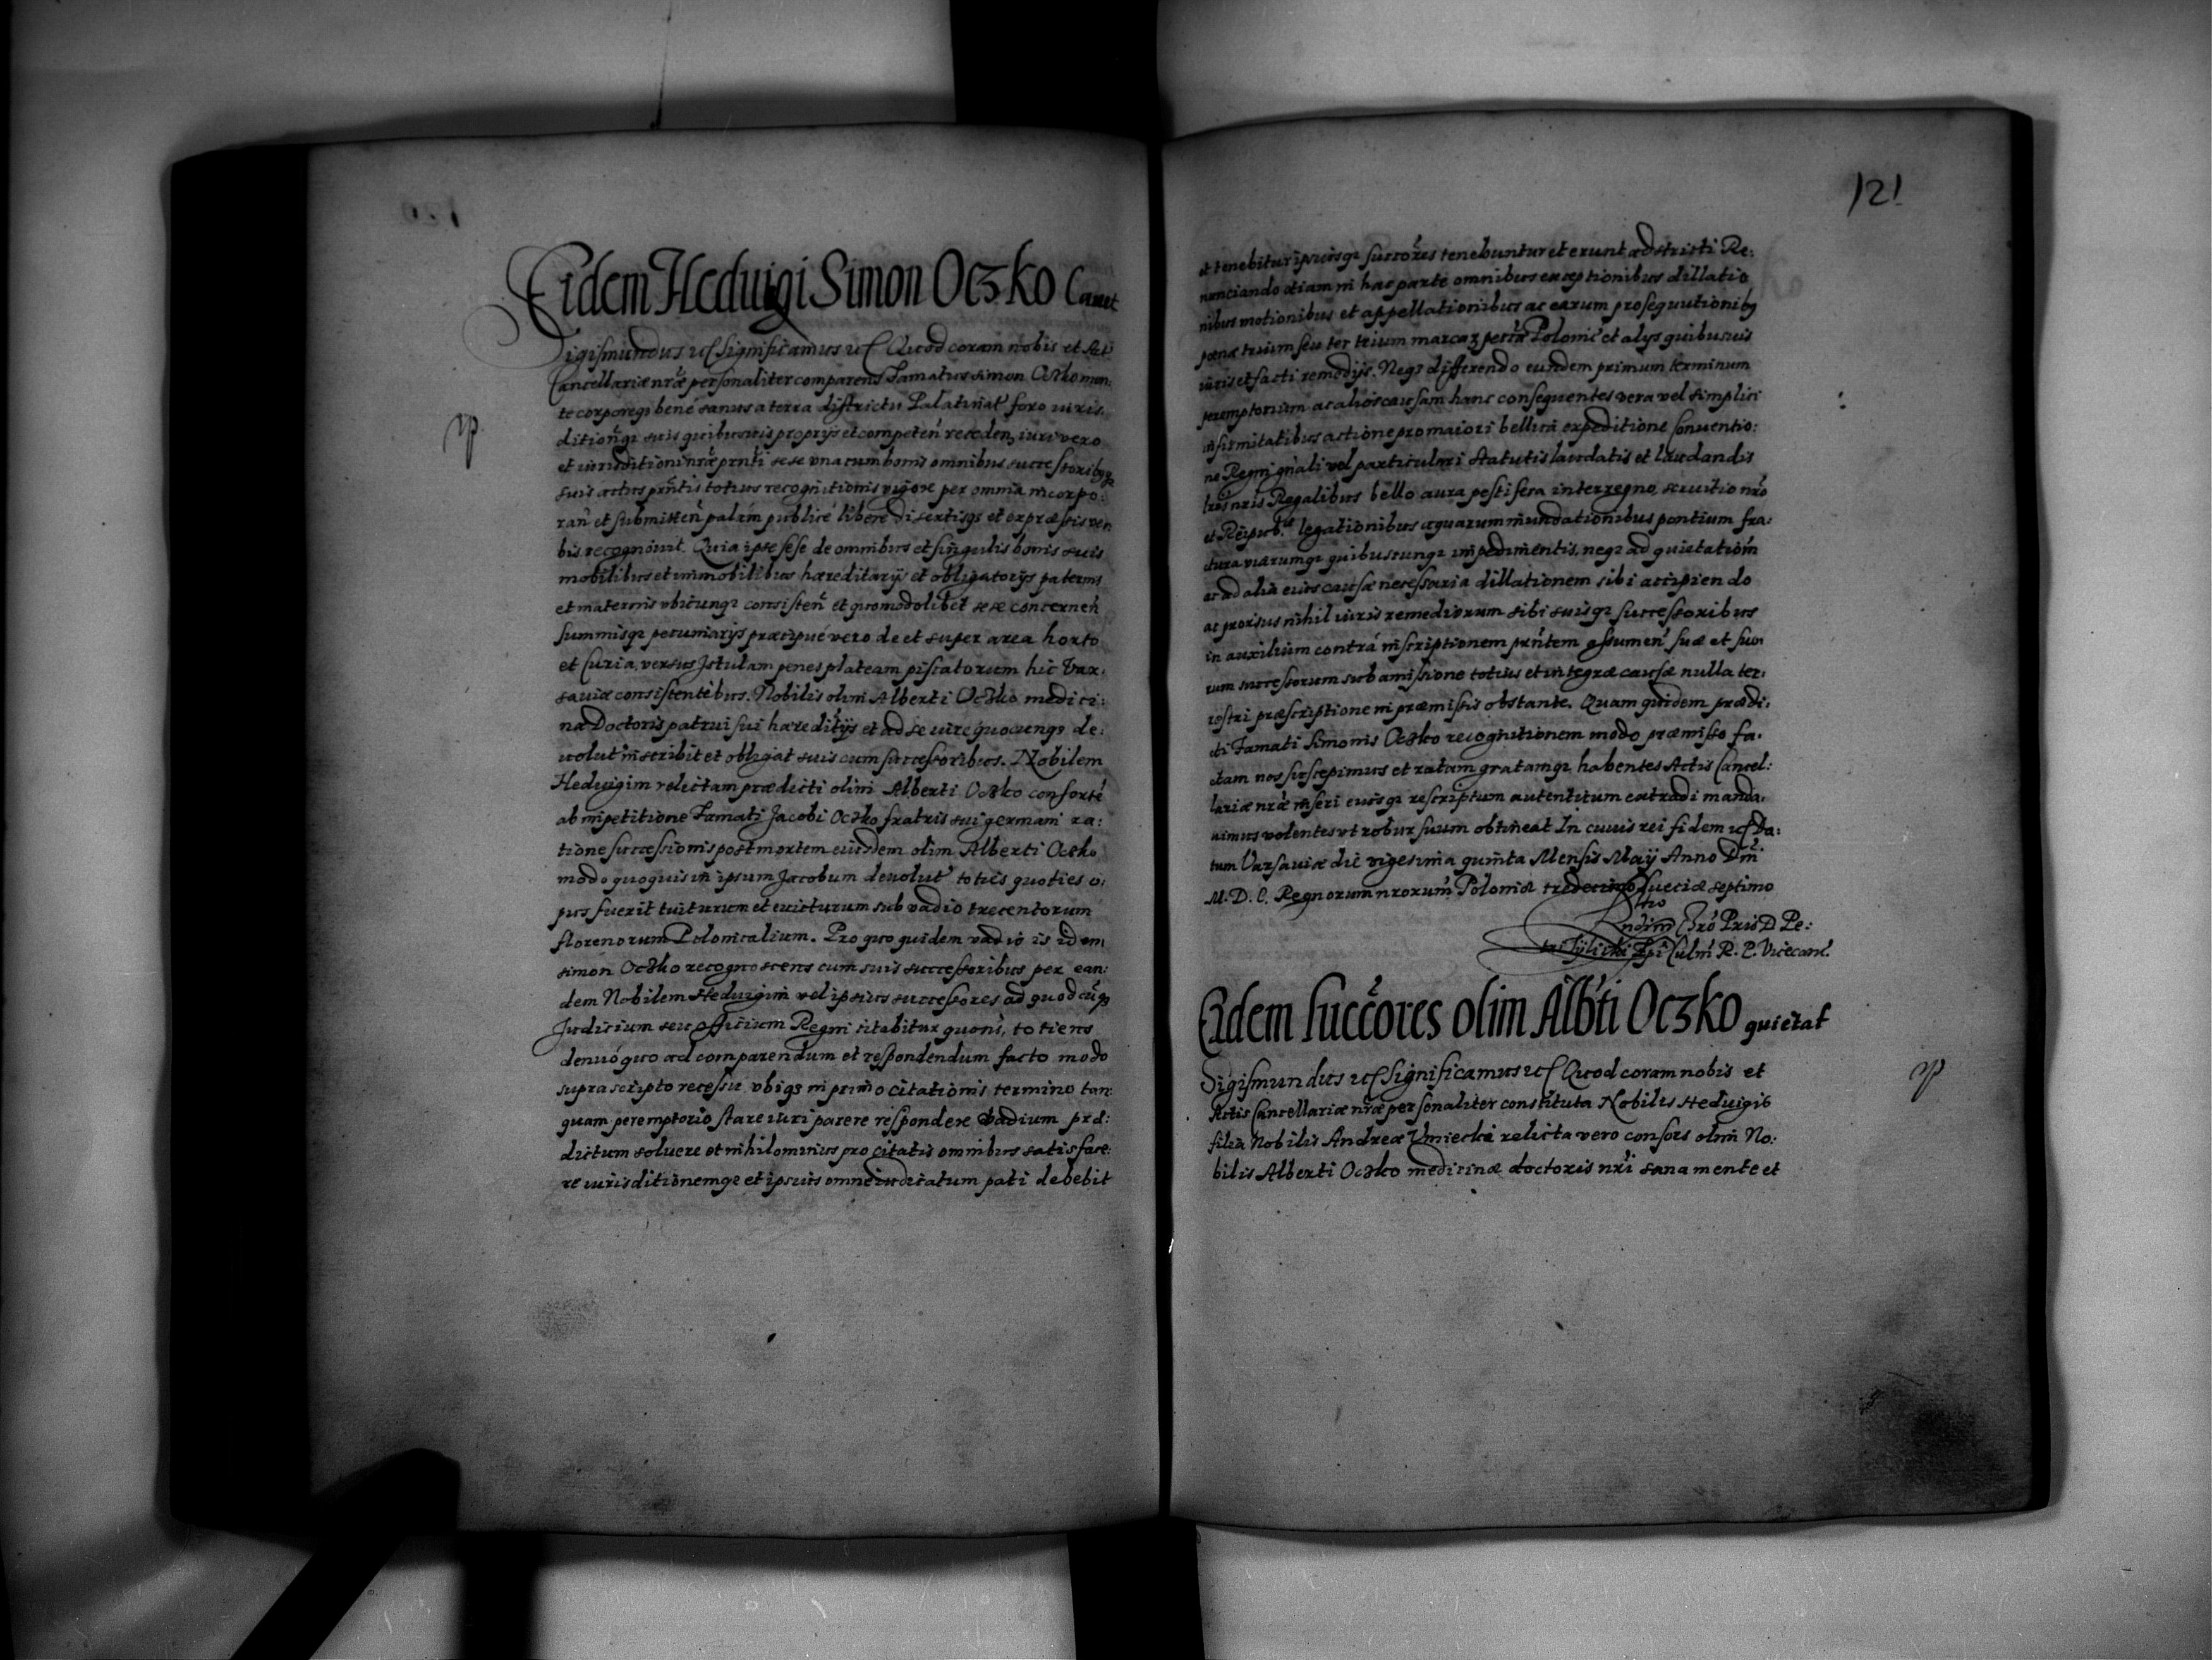 Eidem Heduigi Simon Oczko Cauet
Sigismundus etc Significamus etc Quod coram nobis et Act
Cancellariæ nræ personaliter comparens Famatus Simon Oczko men:
te corporeqꝫ bené sanus a terra districtu Palatinat foro iuris
dition̄qꝫ suis quibusuis proprijs et competen̄ receden, iuri vero
et iurisditioni nræ prnti sese vna cum bonis omnibus successoribꝫqꝫ
suis actus prñtis totius recognitionis vigore per omnia incorpo:
ran̄ et submitten̄ palám publicé liberé disertisqꝫ et expræssis ver
bis recognouit. Quia ipse sese de omnibus et singulis bonis suis
mobilibus et immobilibus hæreditarijs et obligatorijs paternis
et maternis vbicunqꝫ consisten̄ et quomodolibet sese concernen̄
summisqꝫ pecuniarijs præcipué vero de et super area horto
et Curia, versus Istulam penes plateam piscatorum hic Var:
sauiæ consistentibus. Nobilis olim Alberti Oczko medici:
næ Doctoris patrui sui hæreditijs et ad se iure quocunqꝫ de:
uolut inscribit et obligat suis cum successoribus. Nobilem
Heduigim relictam prædicti olim Alberti Oczko consorté
ab impetitione Famati Jacobi Oczko fratris sui germani ra:
tione successionis post mortem eiusdem olim Alberti Oczko
modo quoquis in ipsum Jacobum deuolut toties quoties o:
pus fuerit tuiturum et euicturum sub vadio trecentorum
florenorum Polonicalium. Pro quo quidem vadio is idem
Simon Oczko recognoscens cum suis successoribus per ean:
dem Nobilem Heduigim vel ipsius successores ad quodcūqꝫ
Judicium seu officium Regni citabitur quoñs, totiens
denuó quo ad comparendum et respondendum facto modo
supra scripto recessu vbiqꝫ in primo citationis termino tan:
quam peremptorio stare iuri parere respondere vadium præ:
dictum soluere et nihilominus pro citatis omnibus satisface:
re iurisditionemqe et ipsius omne iudicatum pati debebit
121
et tenebitur ipsiusqꝫ succores tenebuntur et erunt adstricti Re:
nunciando etiam in hac parte omnibus exceptionibus dillatio
nibus motionibus et appellationibus ac earum prosequutionibꝫ
pœnæ trium seu ter trium marcaꝫ Polonic et alijs quibusuis
iuris et facti remedijs. Neqꝫ differendo eundem primum terminum
peremptorium ac alios causam hanc consequentes vera vel simplici
infirmitatibus actione pro maiori bellica expeditione Conuentio:
ne Regni gnali vel particulari statutis laudatis et laudandis
lris nris Regalibus bello aura pestifera interregno, seruitio nro
et Reipub. legationibus aquarum inundationibus pontium fra:
ctura viarumqꝫ quibuscunqꝫ impedimentis, neqꝫ ad quietatióm
ac ad alia eius causæ necessaria dillationem sibi accipiendo
ac prorsus nihil iuris remediorum sibi suisqꝫ successoribus
in auxilium contrá inscriptionem prñtem assumen̄ suæ et suo
rum successorum sub amissione totius et integræ causæ nulla ter:
restri præscriptione in præmissis obstante. Quam quidem prædi:
cti Famati Simonis Oczko recognitionem modo præmisso fa:
ctam nos suscepimus et ratam gratamqꝫ habentes Actis Cancel:
lariæ nræ inseri eiusqꝫ rescriptum autenticum extradi manda:
uimus volentes vt robur suum obtineat In cuius rei fidem etc Da:
tum Varsauiæ die vigesima quinta Mensis Maij Anno Dni
M. D. C. Regnorum nrorum Poloniæ tredecimo Sueciæ septimo
Rltio
Rndim Chro Pris D Pe:
tri Tÿlicki Epi Culm R. P. Vicecanc.
Eidem succores olim Albti Oczko quietat
Sigismundus etc Significamus etc Quod coram nobis et
Actis Cancellariæ nræ personaliter constituta Nobilis Heduigis
filia Nobilis Andreæ Umiecki relicta vero consors olim No:
bilis Alberti Oczko medicinæ doctoris nri sana mente et